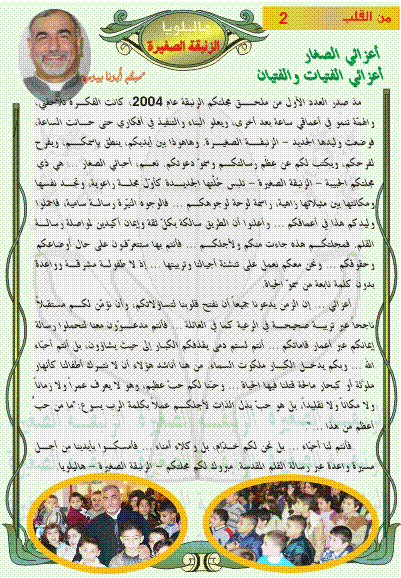 من القلب 2
هاليلويا
الزنبقة الصغيرة
أعزائي الصغار
أعزائي الفتيات والفتيان
محبكم أبونا بيوس
منذ صدور العدد الأول من ملحق مجلتكم الزنبقة عام 2004، كانت الفكرة تلاحقني،
والهمّة تنمو في أعماقي ساعة بعد أخرى، ويعلو البناء والتنفيذ في أفكاري حتى حانت الساعة،
فوضعت وليدها الجديد – الزنبقة الصغيرة. وهاهوذا بين أيديكم، ينطق باسمكم، ويفرح
لفرحكم، ويكتب لكم عن عظم رسالتكم وسموّ دعوتكم. نعم، أحبائي الصغار ... هي ذي
مجلتكم الحبيبة – الزنبقة الصغيرة – تلبس حُلّتها الجديدة كأوّل مجلة راعوية، وتجد نفسها
ومكانتها بين مثيلاتها زاهية، راسمة لوحة لوجوهكم ... فالوجوه النيّرة رسالة سامية، فاحملوا
وليدكم هذا في أعماقكم ... وأعلنوا أن الطريق سالكة بكلّ ثقة وإيمان أكيدين لمواصلة رسالة
القلم. فمجلتكم هذه جاءت منكم ولأجلكم ... فأنتم بها ستتعرفون على حال أوضاعكم
وحقوقكم ... ونحن معكم نعمل على تنشئة أجيالنا وتربيتها ... إذ لا طفولة مشرقة وواعدة
بدون كلمة نابعة من سموّ الحياة.
أعزائي ... إن الزمن يدعونا جميعاً أن نفتح قلوبنا لتساؤلاتكم، وأن نؤمّن لكم مستقبلاً
ناجحاً عبر تربية صحيحة في الرعية كما في العائلة ... فأنتم مدعوّون معنا لتحملوا رسالة
إيمانكم عبر أعمار قاماتكم ... أنتم لستم دمى يقذفكم الكبار إلى حيث يشاؤون، بل أنتم أحبّاء
الله ... وبكم يدخل الكبار ملكوت السماء. من هنا أناشد هؤلاء أن لا نترك أطفالنا كأنهار
ملوثة أو كبحار مالحة قتلنا فيها الحياة ... وحبّنا لكم حبّ عظيم، وهو لا يعرف عمراً ولا زماناً
ولا مكاناً ولا تقليداً، بل هو حبّ بذل الذات لأجلكم عملاً بكلمة الرب يسوع: "ما من حبّ
أعظم من هذا ..."
فأنتم لنا أحبّاء ... بل نحن لكم خدّام، بل وكلاء أمناء ... فامسكوا بأيدينا من أجل
مسيرة واعدة عبر رسالة القلم المقدسة. مبروك لكم مجلتكم – الزنبقة الصغيرة – هاليلويا.